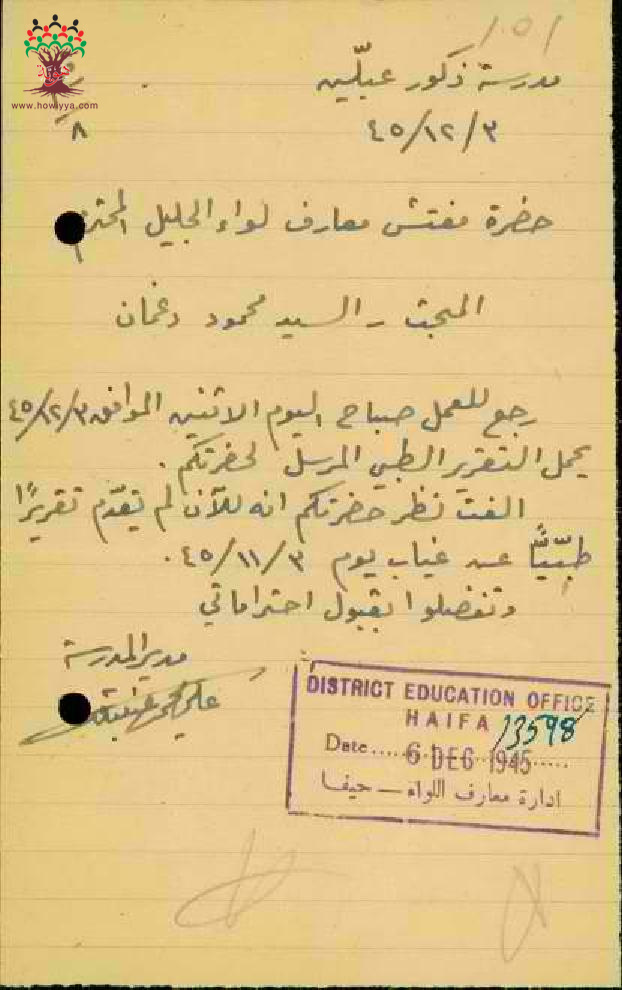 ١٥١
مدرسة ذكور عبلّين
٤٥/١٢/٣
٨
www.howiyya.com
حضرة مفتش معارف لواء الجليل المحترم
المبحث - السيد محمود دغمان
رجع للعمل صباح اليوم الاثنين الموافق ٤٥/١٢/٣
يحمل التقرير الطبي المرسل لحضرتكم .
الفت نظر حضرتكم انه للآن لم يقدّم تقريرًا
طبّيًّا عن غياب يوم ٤٥/١١/٣ .
وتفضلوا بقبول احتراماتي
مدير المدرسة
علي
DISTRICT EDUCATION OFFICE
HAIFA 13598
Date..... 6 DEC 1945.....
ادارة معارف اللواء — حيفا